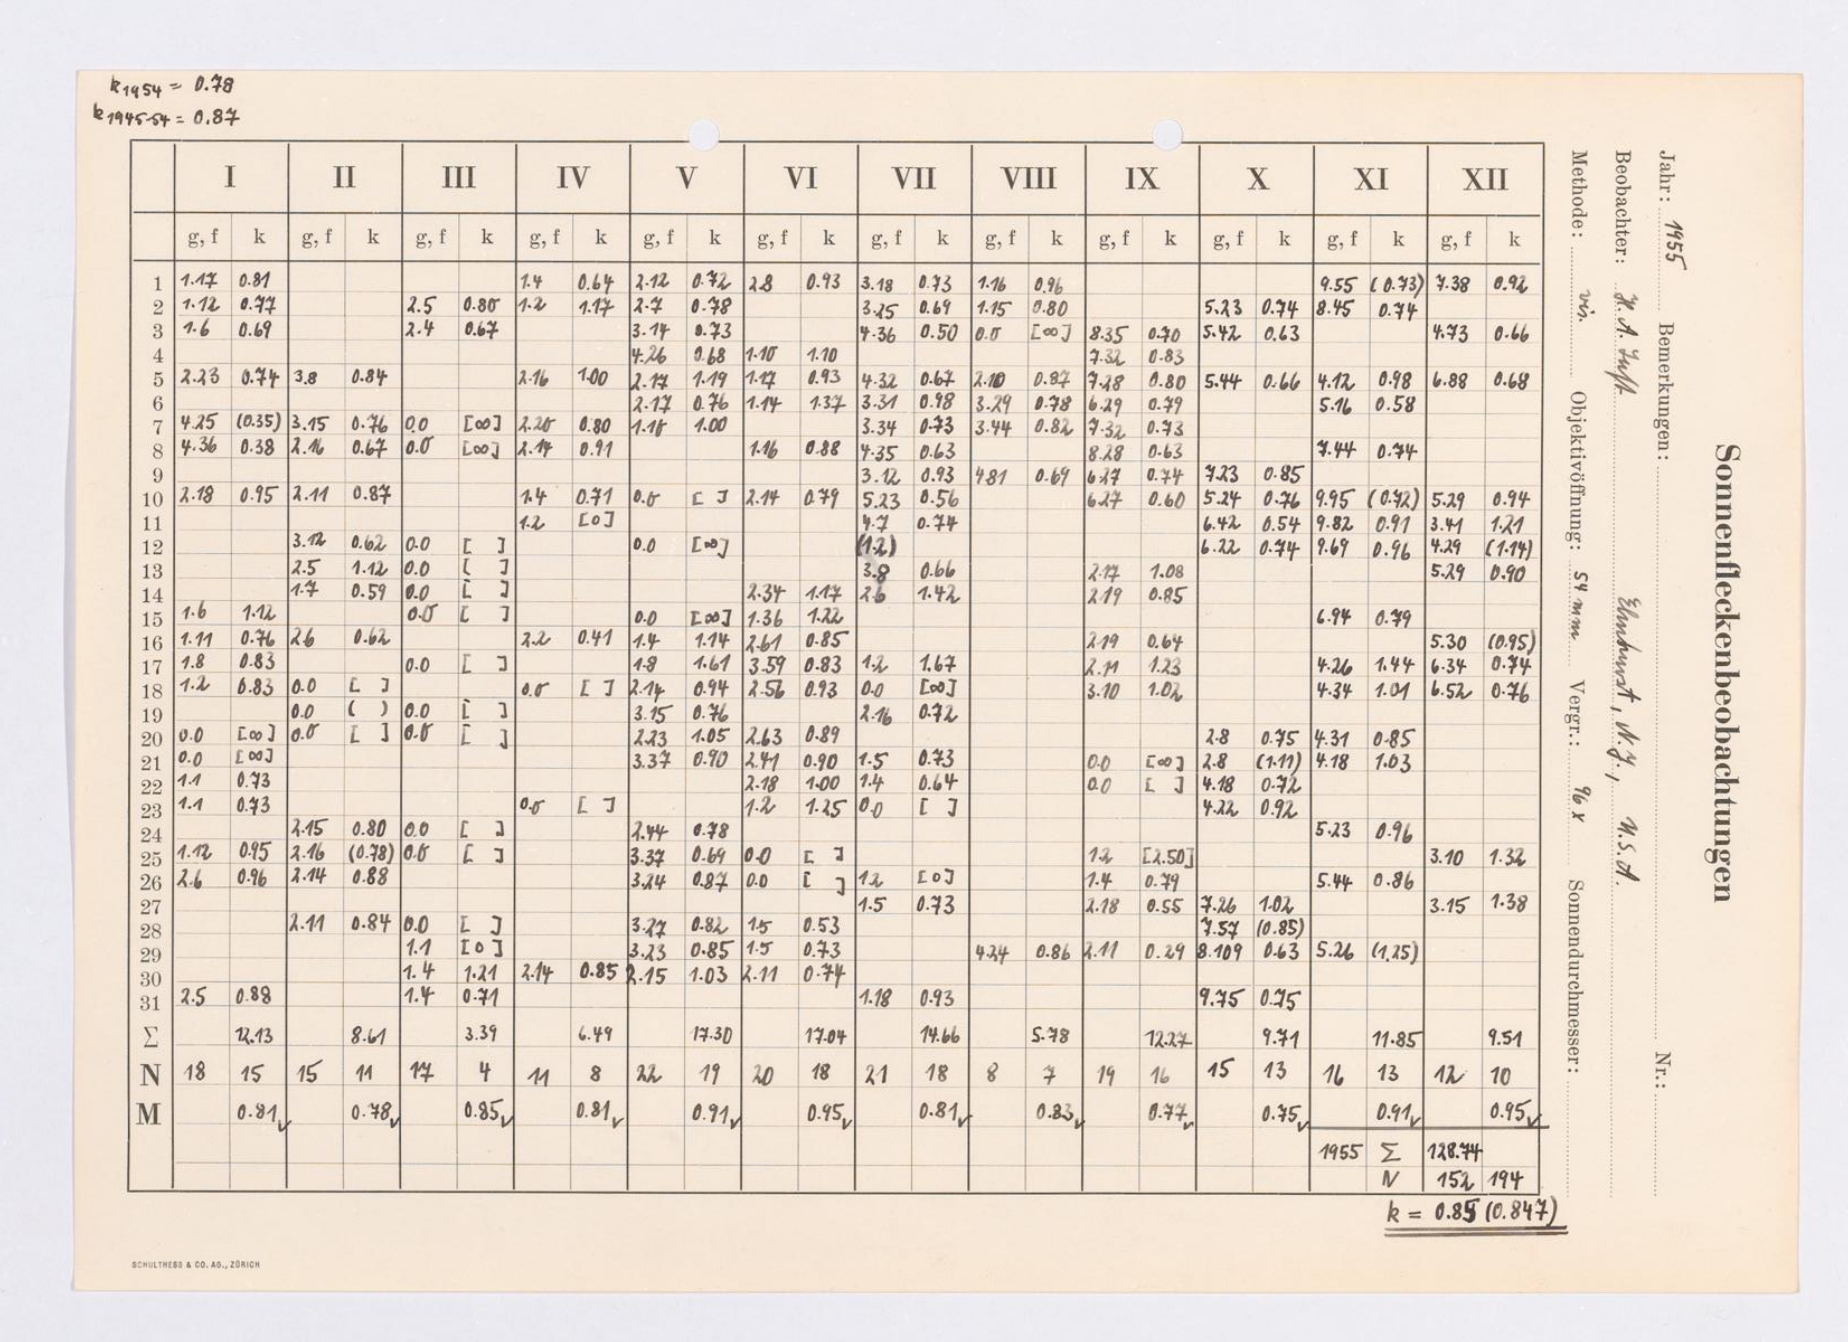 k 1954 = 0.78
k 1945-54 = 0.87
Sonnenfleckenbeobachtungen
Jahr: 1955 Bemerkungen: Nr.:
Beobachter: H. A. Luft Elmhurst, N.Y., U.S.A.
Methode: vis. Objektivöffnung: 54 mm Vergr.: 96 x Sonnendurchmesser:
I II III IV V VI VII VIII IX X XI XII
g, f k g, f k g, f k g, f k g, f k g, f k g, f k g, f k g, f k g, f k g, f k g, f k
1 1.17 0.81 1.4 0.64 2.12 0.72 2.8 0.93 3.18 0.73 1.16 0.96 9.55 (0.73) 7.38 0.92
2 1.12 0.77 2.5 0.80 1.2 1.17 2.7 0.78 3.25 0.69 1.15 0.80 5.23 0.74 8.45 0.74
3 1.6 0.69 2.4 0.67 3.14 0.73 4.36 0.50 0.0 [∞] 8.35 0.70 5.42 0.63 4.73 0.66
4 4.26 0.68 1.10 1.10 7.32 0.83
5 2.23 0.74 3.8 0.84 2.16 1.00 2.17 1.19 1.17 0.93 4.32 0.67 2.10 0.87 7.28 0.80 5.44 0.66 4.12 0.98 6.88 0.68
6 2.17 0.76 1.14 1.37 3.31 0.98 3.29 0.78 6.29 0.79 5.16 0.58
7 4.25 (0.35) 3.15 0.76 0.0 [∞] 2.20 0.80 1.18 1.00 3.34 0.73 3.44 0.82 7.32 0.73
8 4.36 0.38 2.16 0.67 0.0 [∞] 2.14 0.91 1.16 0.88 4.35 0.63 8.28 0.63 7.44 0.74
9 3.12 0.93 4.81 0.69 6.27 0.74 7.23 0.85
10 2.18 0.95 2.11 0.87 1.4 0.71 0.0 [ ] 2.14 0.79 5.23 0.56 6.27 0.60 5.24 0.76 9.95 (0.72) 5.29 0.94
11 1.2 [0] 4.7 0.74 6.42 0.54 9.82 0.91 3.41 1.21
12 3.12 0.62 0.0 [ ] 0.0 [∞] (1.2) 6.22 0.74 9.69 0.96 4.29 (1.14)
13 2.5 1.12 0.0 [ ] 3.8 0.66 2.17 1.08 5.29 0.90
14 1.7 0.59 0.0 [ ] 2.34 1.17 2.6 1.42 2.19 0.85
15 1.6 1.12 0.0 [ ] 0.0 [∞] 1.36 1.22 6.94 0.79
16 1.11 0.76 2.6 0.62 2.2 0.41 1.4 1.14 2.61 0.85 2.19 0.64 5.30 (0.95)
17 1.8 0.83 0.0 [ ] 1.8 1.61 3.59 0.83 1.2 1.67 2.11 1.23 4.26 1.44 6.34 0.74
18 1.2 0.83 0.0 [ ] 0.0 [ ] 2.14 0.94 2.56 0.93 0.0 [∞] 3.10 1.02 4.34 1.01 6.52 0.76
19 0.0 ( ) 0.0 [ ] 3.15 0.76 2.16 0.72
20 0.0 [∞] 0.0 [ ] 0.0 [ ] 2.23 1.05 2.63 0.89 2.8 0.75 4.31 0.85
21 0.0 [∞] 3.37 0.90 2.41 0.90 1.5 0.73 0.0 [∞] 2.8 (1.11) 4.18 1.03
22 1.1 0.73 2.18 1.00 1.4 0.64 0.0 [ ] 4.18 0.72
23 1.1 0.73 0.0 [ ] 1.2 1.25 0.0 [ ] 4.22 0.92
24 2.15 0.80 0.0 [ ] 2.44 0.78 5.23 0.96
25 1.12 0.95 2.16 (0.78) 0.0 [ ] 3.37 0.69 0.0 [ ] 1.2 [2.50] 3.10 1.32
26 2.6 0.96 2.14 0.88 3.24 0.87 0.0 [ ] 1.2 [0] 1.4 0.79 5.44 0.86
27 1.5 0.73 2.18 0.55 7.26 1.02 3.15 1.38
28 2.11 0.84 0.0 [ ] 3.27 0.82 1.5 0.53 7.57 (0.85)
29 1.1 [0] 3.23 0.85 1.5 0.73 4.24 0.86 2.11 0.29 8.109 0.63 5.26 (1.25)
30 1.4 1.21 2.14 0.85 2.15 1.03 2.11 0.74
31 2.5 0.88 1.4 0.71 1.18 0.93 9.75 0.75
Σ 12.13 8.61 3.39 6.49 17.30 17.04 14.66 5.78 12.27 9.71 11.85 9.51
N 18 15 15 11 17 4 11 8 22 19 20 18 21 18 8 7 19 16 15 13 16 13 12 10
M 0.81 0.78 0.85 0.81 0.91 0.95 0.81 0.83 0.77 0.75 0.91 0.95
1955 Σ 128.74
N 152 194
k = 0.85 (0.847)
SCHULTHESS & CO. AG., ZÜRICH